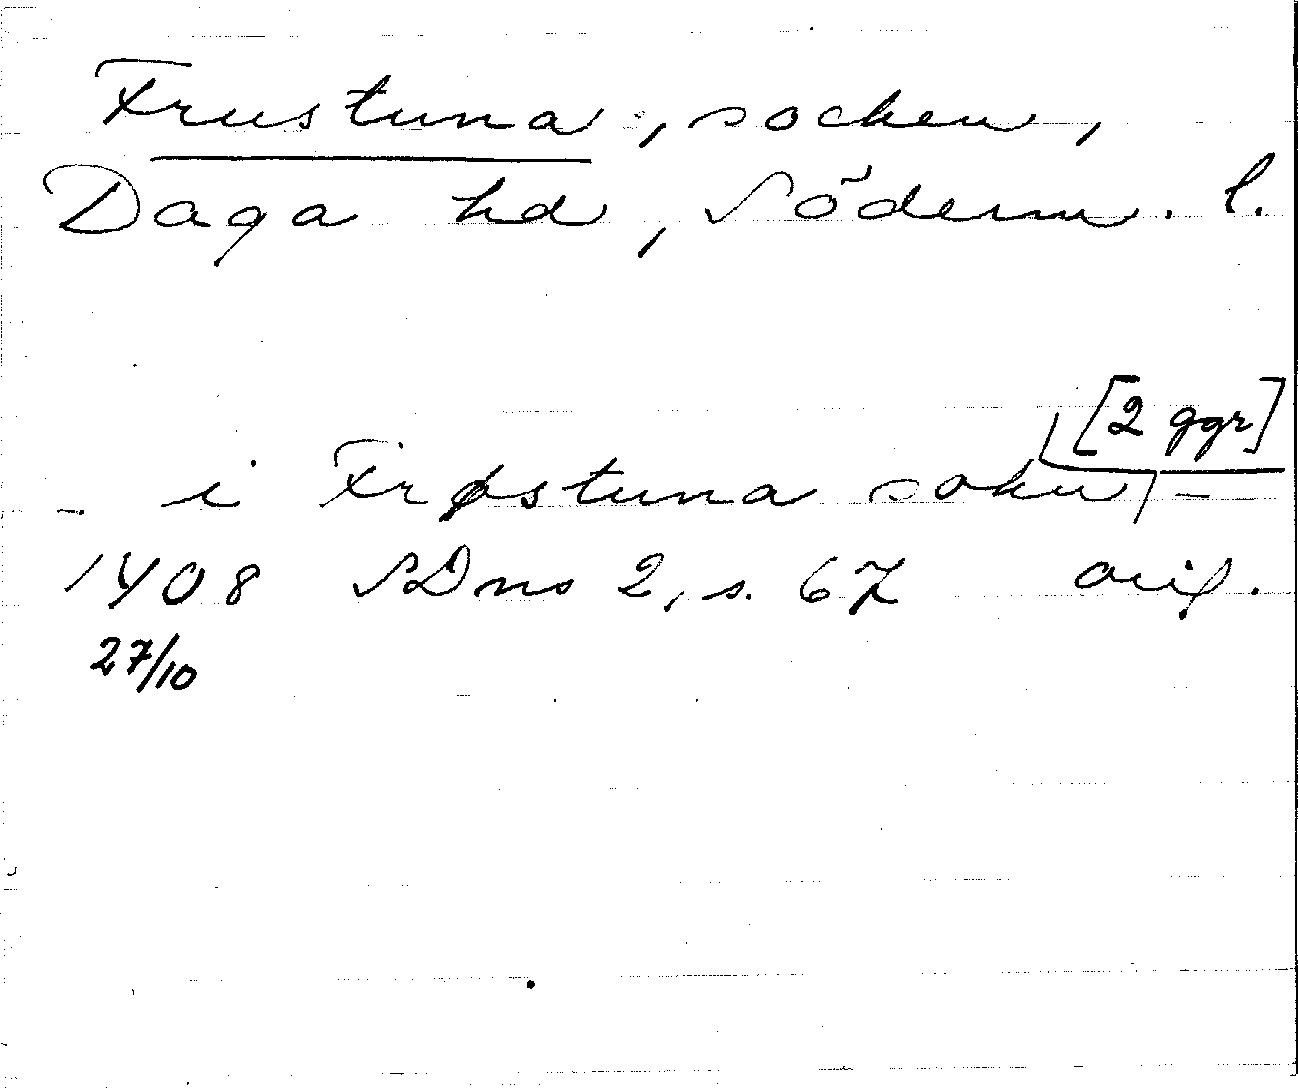 Frustuna, socken,
Daga hd, Söderm. l.
[2 ggr]
i Frøstuna sokn
1408 SDns 2, s. 67 orig.
27/10